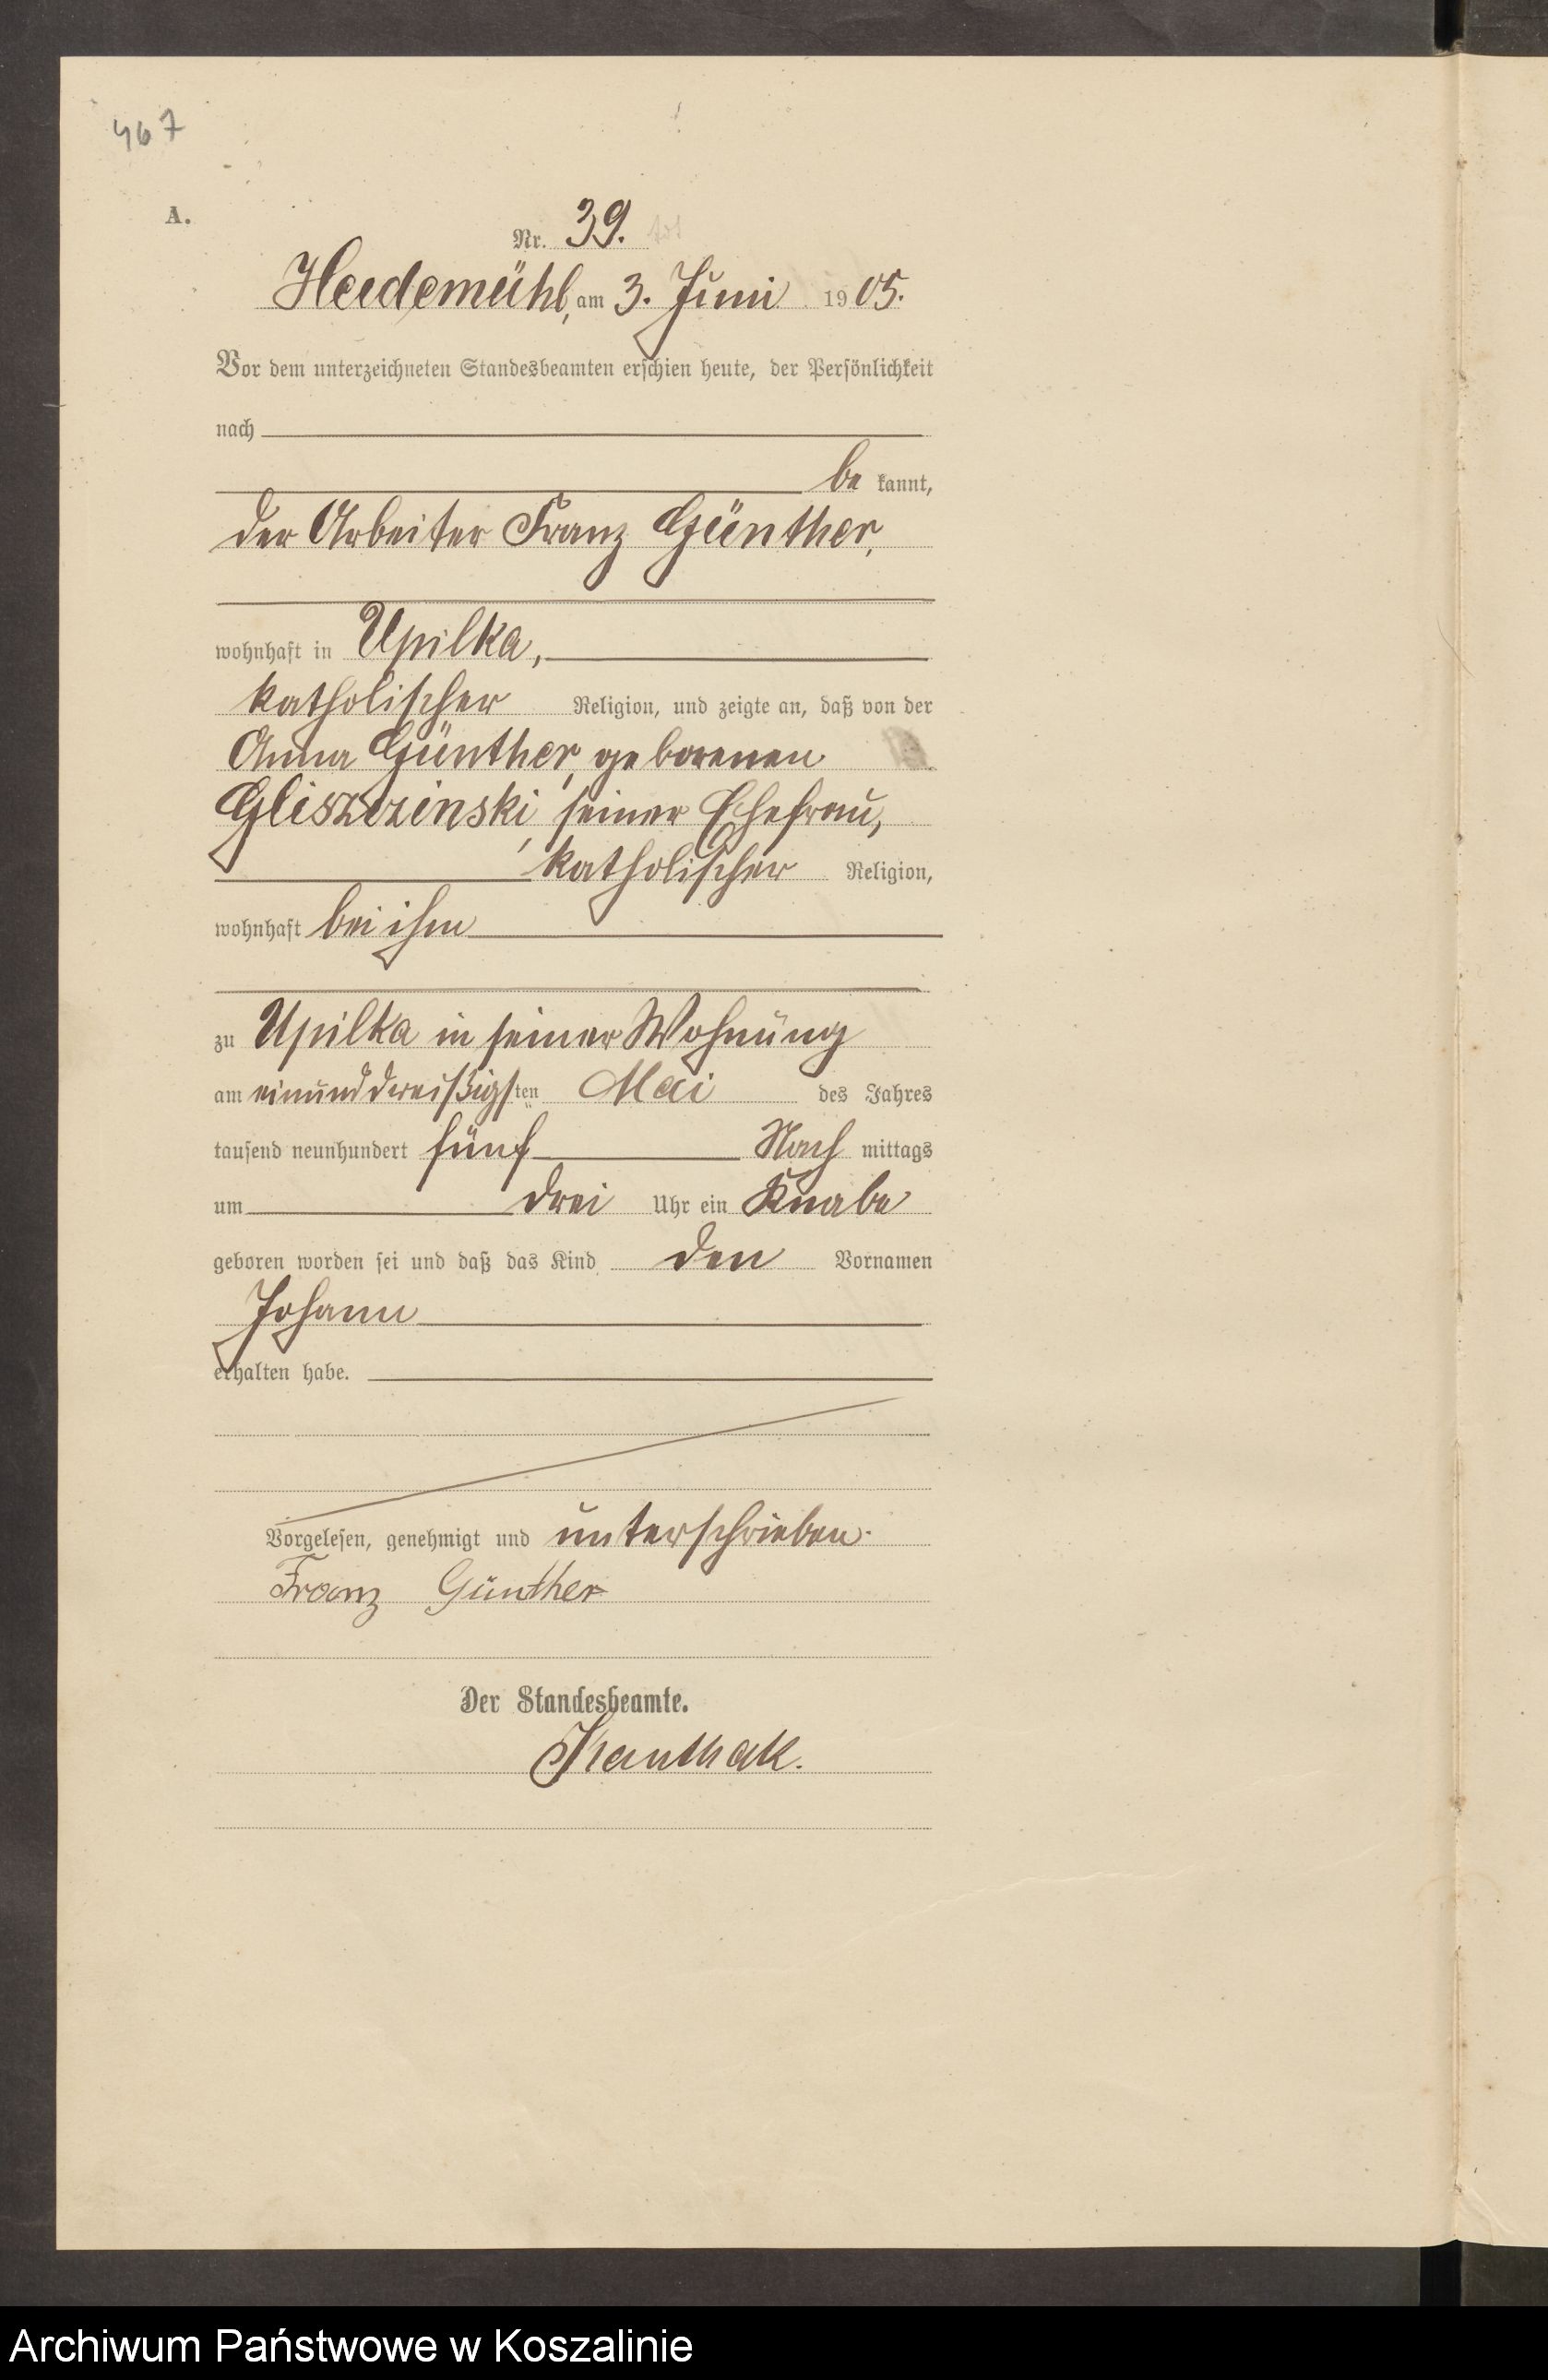 467
A.
Nr. 39.
Heidemühl, am 3. Juni 1905.
Vor dem unterzeichneten Standesbeamten erschien heute, der Persönlichkeit
nach
be kannt,
der Arbeiter Franz Günther,
wohnhaft in Upilka,
katholischer Religion, und zeigte an, daß von der
Anna Günther, geborenen
Gliszczinski, seiner Ehefrau,
katholischer Religion,
wohnhaft bei ihm
zu Upilka in seiner Wohnung
am einunddreißigsten Mai des Jahres
tausend neunhundert fünf Nach mittags
um drei Uhr ein Knabe
geboren worden sei und daß das Kind den Vornamen
Johann
erhalten habe.
Vorgelesen, genehmigt und unterschrieben.
Franz Günther
Der Standesbeamte.
Kanthak.
Archiwum Państwowe w Koszalinie